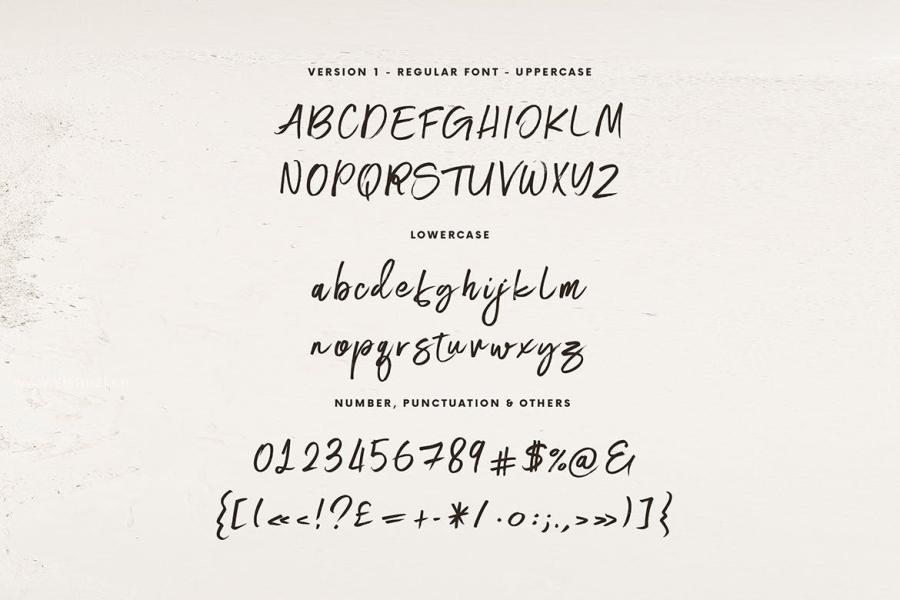 VERSION 1 - REGULAR FONT - UPPERCASE
ABCDEFGHIJKLM
NOPQRSTUVWXYZ
LOWERCASE
abcdefghijklm
nopqrstuvwxyz
NUMBER, PUNCTUATION & OTHERS
0123456789#$%@&
{[(«<!?£=+-*/·o:;.,>»)]}